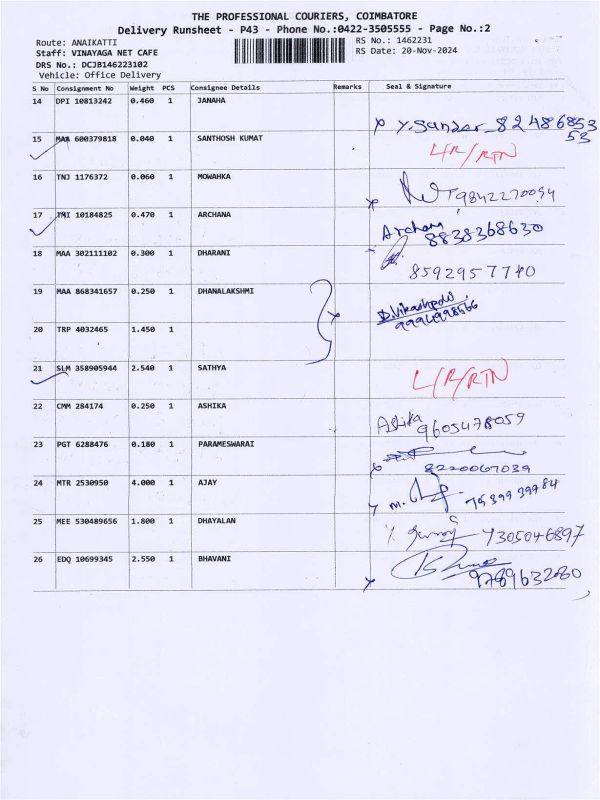 THE PROFESSIONAL COURIERS, COIMBATORE
Delivery Runsheet - P43 - Phone No.:0422-3505555 - Page No.:2
Route: ANAIKATTI RS No.: 1462231
Staff: VINAYAGA NET CAFE RS Date: 20-Nov-2024
DRS No.: DCJB146223102
Vehicle: Office Delivery
S No Consignment No Weight PCS Consignee Details Remarks Seal & Signature
14 DPI 10813242 0.460 1 JANAHA
8248685353
15 MAB 600379818 0.040 1 SANTHOSH KUMAT L/R/RTN
16 TNJ 1176372 0.060 1 MOWAHKA
17 TMI 10184825 0.470 1 ARCHANA Archana
8838368630
18 MAA 302111102 0.300 1 DHARANI
8592957740
19 MAA 868341657 0.250 1 DHANALAKSHMI
20 TRP 4032465 1.450 1
21 SLM 358905944 2.540 1 SATHYA L/R/RTN
22 CMM 284174 0.250 1 ASHIKA Ashika
9605478059
23 PGT 6288476 0.180 1 PARAMESWARAI
8220067039
24 MTR 2530950 4.000 1 AJAY
25 MEE 530489656 1.800 1 DHAYALAN 7305046897
26 EDQ 10699345 2.550 1 BHAVANI
9789632080